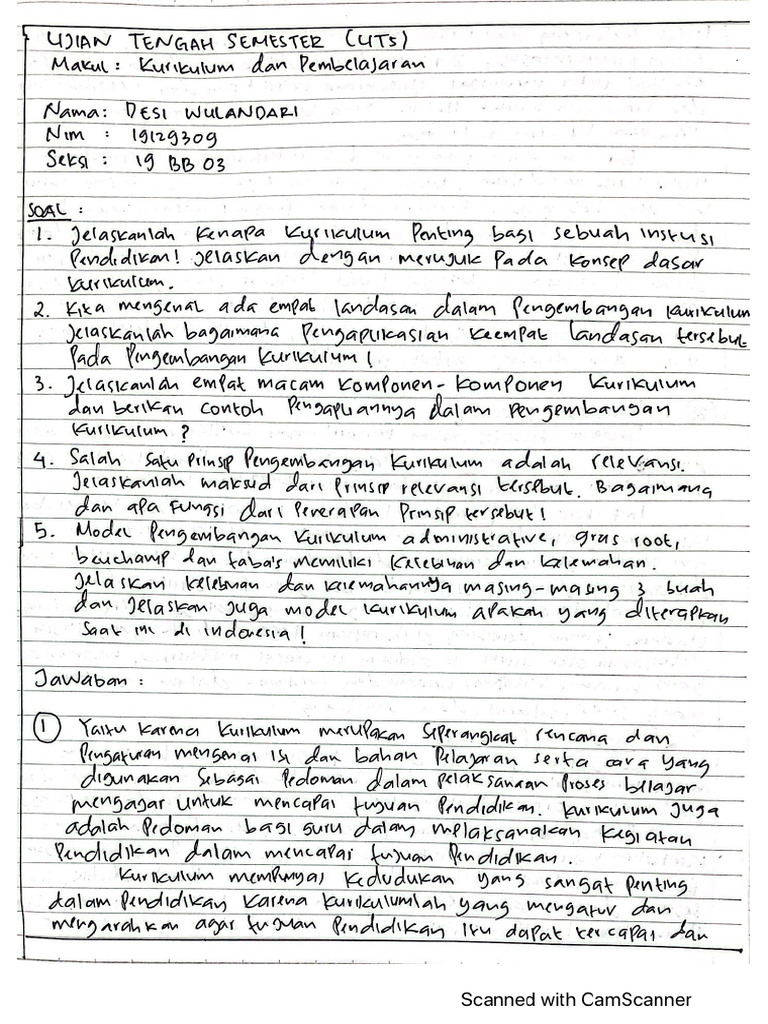 UJIAN TENGAH SEMESTER (UTS)
Makul : Kurikulum dan Pembelajaran
Nama : DESI WULANDARI
Nim : 19129309
Seksi : 19 BB 03
SOAL :
1. Jelaskanlah kenapa kurikulum penting bagi sebuah instusi
Pendidikan! Jelaskan dengan merujuk pada konsep dasar
kurikulum.
2. Kita mengenal ada empat landasan dalam pengembangan kurikulum
Jelaskanlah bagaimana pengaplikasian keempat landasan tersebut
pada pengembangan kurikulum!
3. Jelaskanlah empat macam komponen-komponen kurikulum
dan berikan contoh pengapliannya dalam pengembangan
kurikulum ?
4. Salah satu prinsip pengembangan kurikulum adalah relevansi.
Jelaskanlah maksud dari prinsip relevansi tersebut. Bagaimana
dan apa fungsi dari penerapan prinsip tersebut!
5. Model pengembangan kurikulum administrative, gras root,
beuchamp dan taba's memiliki kelebihan dan kelemahan.
Jelaskan kelebihan dan kelemahannya masing-masing 3 buah
dan jelaskan juga model kurikulum apakah yang diterapkan
saat ini di indonesia!
Jawaban :
1 Yaitu karena kurikulum merupakan seperangkat rencana dan
pengaturan mengenai isi dan bahan pelajaran serta cara yang
digunakan sebagai pedoman dalam pelaksanaan proses belajar
mengajar untuk mencapai tujuan pendidikan. kurikulum juga
adalah pedoman bagi guru dalam melaksanakan kegiatan
pendidikan dalam mencapai tujuan pendidikan.
Kurikulum mempunyai kedudukan yang sangat penting
dalam pendidikan karena kurikulumlah yang mengatur dan
mengarahkan agar tujuan pendidikan itu dapat tercapai dan
Scanned with CamScanner